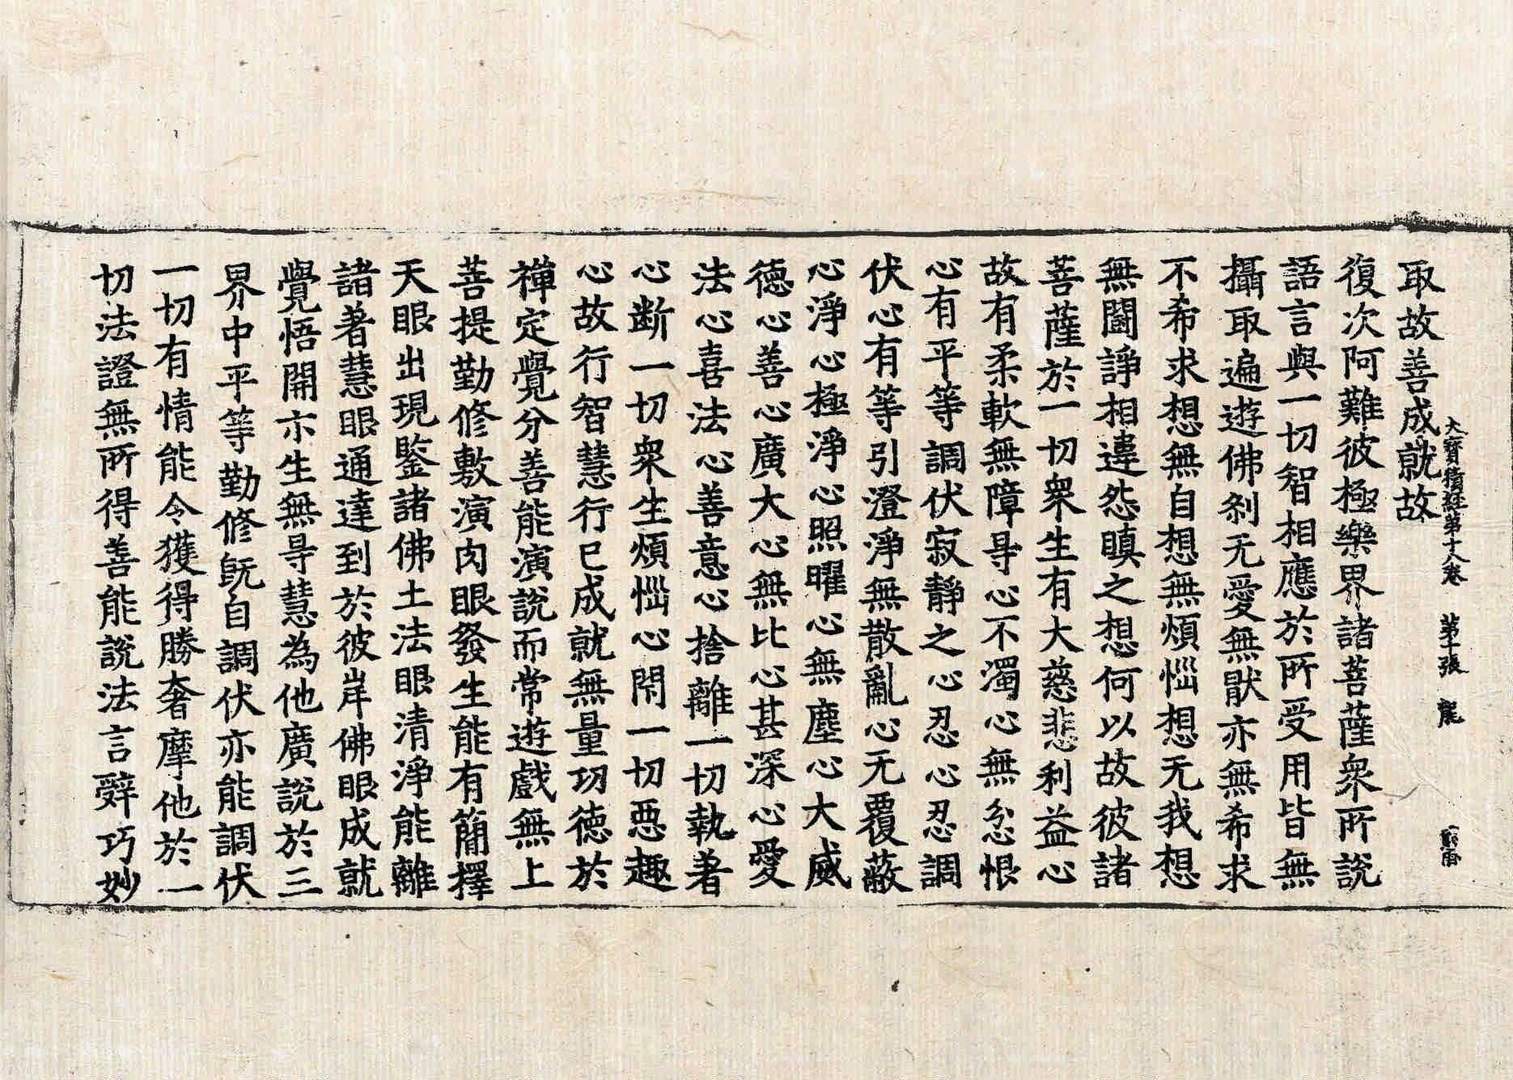 大寶積經第十八卷　第十張　龍
取故善成就故
復次阿難彼極樂界諸菩薩衆所說
語言與一切智相應於所受用皆無
攝取遍遊佛刹无愛無猒亦無希求
不希求想無自想無煩惱想无我想
無鬪諍相違怨瞋之想何以故彼諸
菩薩於一切衆生有大慈悲利益心
故有柔軟無障㝵心不濁心無忿恨
心有平等調伏寂靜之心忍心忍調
伏心有等引澄淨無散亂心无覆蔽
心淨心極淨心照曜心無塵心大威
德心善心廣大心無比心甚深心愛
法心喜法心善意心捨離一切執著
心斷一切衆生煩惱心閇一切惡趣
心故行智慧行已成就無量功德於
禪定覺分善能演說而常遊戲無上
菩提勤修敷演肉眼發生能有簡擇
天眼出現鑒諸佛土法眼清淨能離
諸著慧眼通達到於彼岸佛眼成就
覺悟開示生無㝵慧為他廣說於三
界中平等勤修旣自調伏亦能調伏
一切有情能令獲得勝奢摩他於一
切法證無所得善能說法言辤巧妙